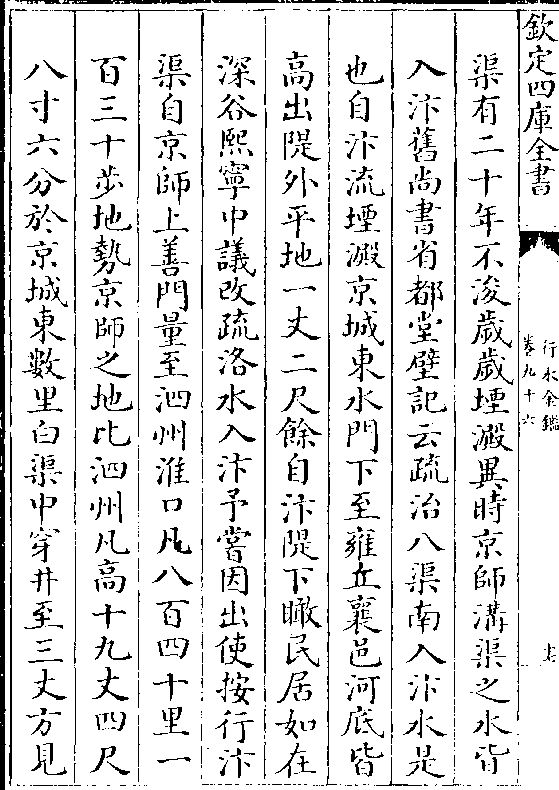 欽定四庫全書
行水金鑑
卷九十六
渠有二十年不浚歲歲堙澱異時京師溝渠之水皆
入汴舊尚書省都堂壁記云疏治八渠南入汴水是
也自汴流堙澱京城東水門下至雍丘襄邑河底皆
高出隄外平地一丈二尺餘自汴隄下瞰民居如在
深谷熙寧中議改疏洛水入汴予嘗因出使按行汴
渠自京師上善門量至泗州淮口凡八百四十里一
百三十步地勢京師之地比泗州凡高十九丈四尺
八寸六分於京城東數里白渠中穿井至三丈方見